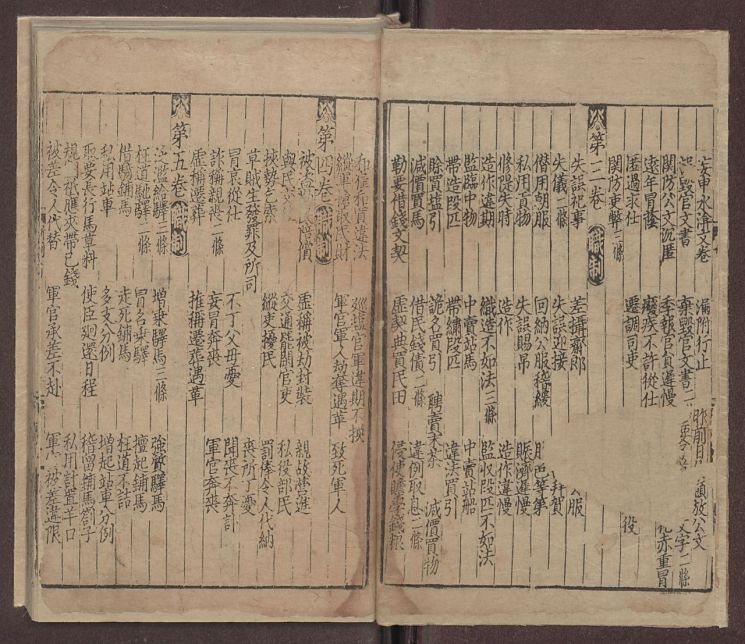 妄申水渰文卷 漏附行止
毀官文書 棄毀官文書二
関防公文沉匿 季報官員遲慢 放公文
遠年冒蔭 癈疾不許從仕 文字二條
匿過求仕 遷調司吏 役
関防吏弊二條
第三卷 職制
失誤祀事 差攝齋郎 服
失儀二條 失誤迎接 拜賀
僭用朝服 回納公服稽緩 服色等第
私用貢物 失誤賜帛 賑濟遲慢
修隄失時 造作 造作違慢
造作違期 織造不如法三條 監收段匹不如法
監臨中物 中賣站馬 中賣站船
帶造段匹 帶綉段匹 違法買引
賒買塩引 詭名買引 減價買物
減價買馬 借民錢債二條 違例取息二條
勒要借錢文契 虛契典買民田 侵使贍學錢粮
和雇和買違法 巡塩官軍違期不換
縱軍搶取民財 軍官軍人劫奪遇革 致死軍人
第四卷 職制
被盜 民陪償 虛稱被劫封裝 親故營進
與民 交通罷閑官吏 私役部民
挾勢乞索 縱吏擾民 罰俸令人代納
草賊生發罪及所司 喪所丁憂
冒哀從仕 不丁父母憂 聞喪不奔訃
詐稱親喪二條 妄冒奔喪 軍官奔喪
虛稱遷葬 推稱遷葬遇革
第五卷 職制
給驛三條 增乗驛馬三條 強 驛馬
枉道馳驛二條 冒名乗驛 擅起鋪馬
借騎鋪馬 走死鋪馬 枉道不詰
私用站車 多支分例 增起站車分例
取要長行馬草料 使臣廻還日程 稽留鋪馬劄子
祗應夾帶己錢 私用計置羊口
被差令人代替 軍官承差不赴 軍官被差違限